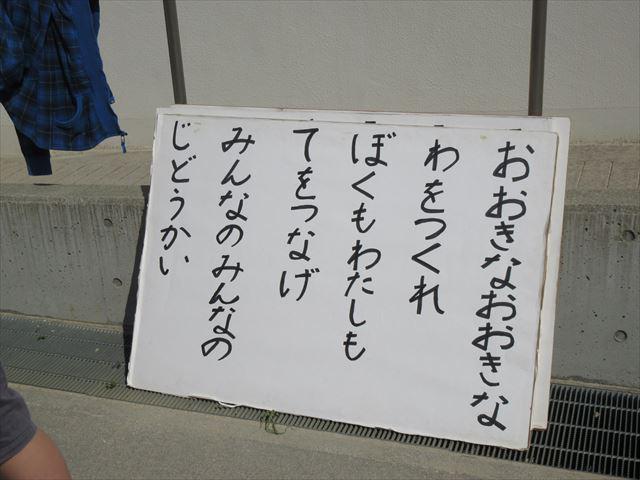 おおきなおおきな
わをつくれ
ぼくもわたしも
てをつなげ
みんなのみんなの
じどうかい